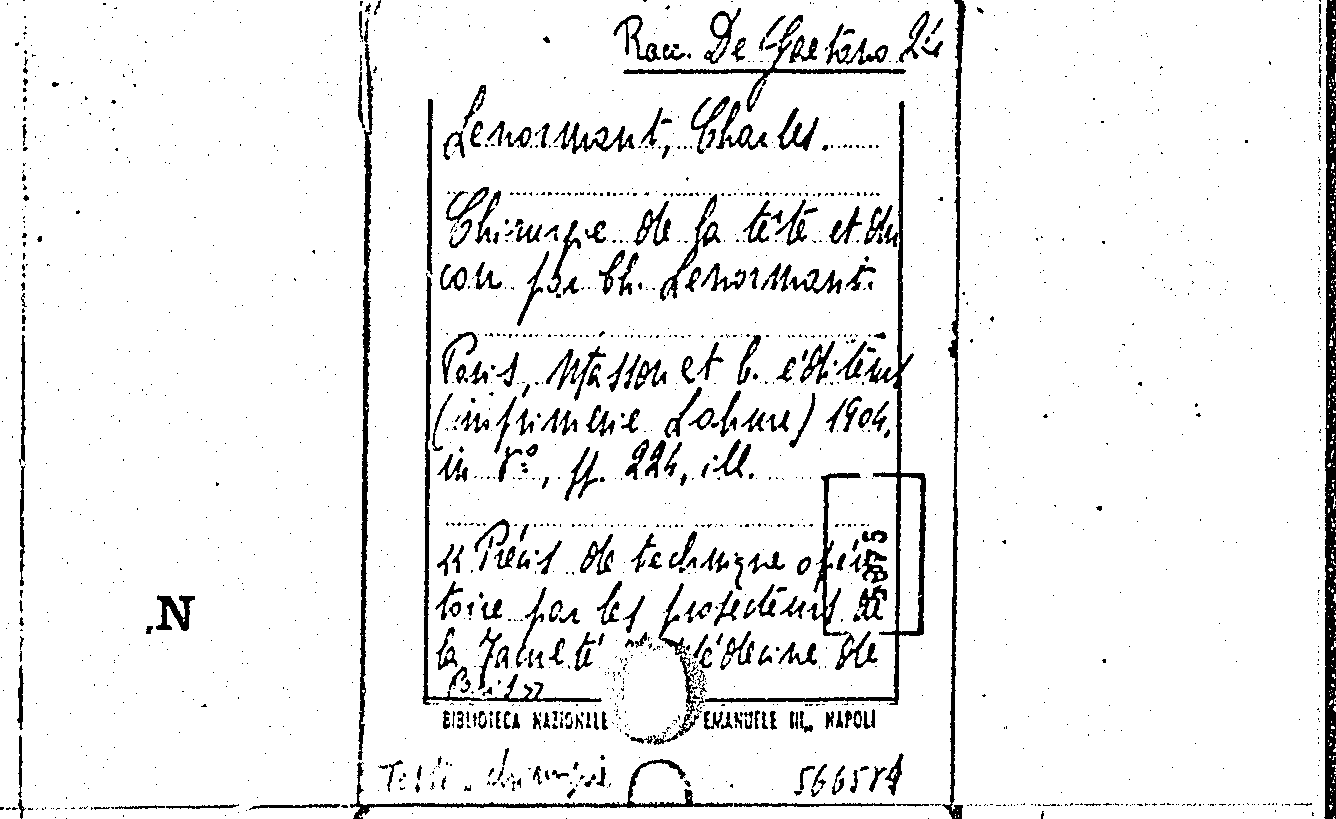 Racc. De Gaetano 24
Lenormant, Charles.
Chirurgie de la tête et du
cou par Ch. Lenormant.
Paris, Masson et C. éditeurs
(imprimerie Lahure) 1904,
in 8º, pp. 224, ill.
« Précis de technique opéra-
toire par les prosecteurs de
la Faculté médecine de
Paris »
BIBLIOTECA NAZIONALE EMANUELE III, NAPOLI
Testa. chirurgia
N.